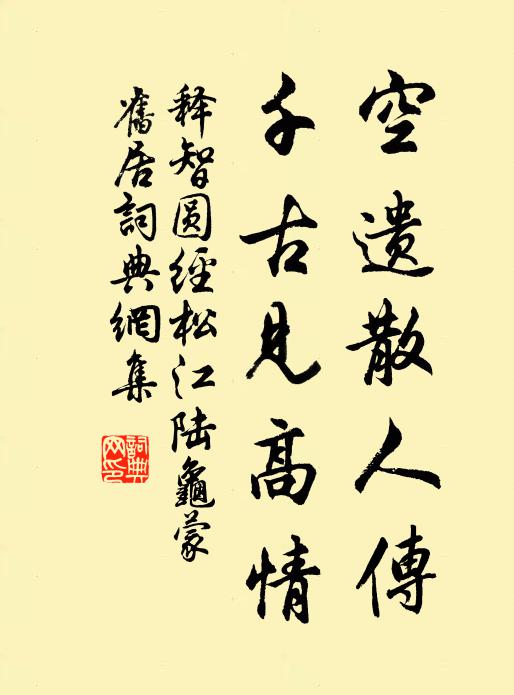 空遺散人傳
千古見高情
释智圆經松江陆龜蒙
舊居詞典網集
詞典网印